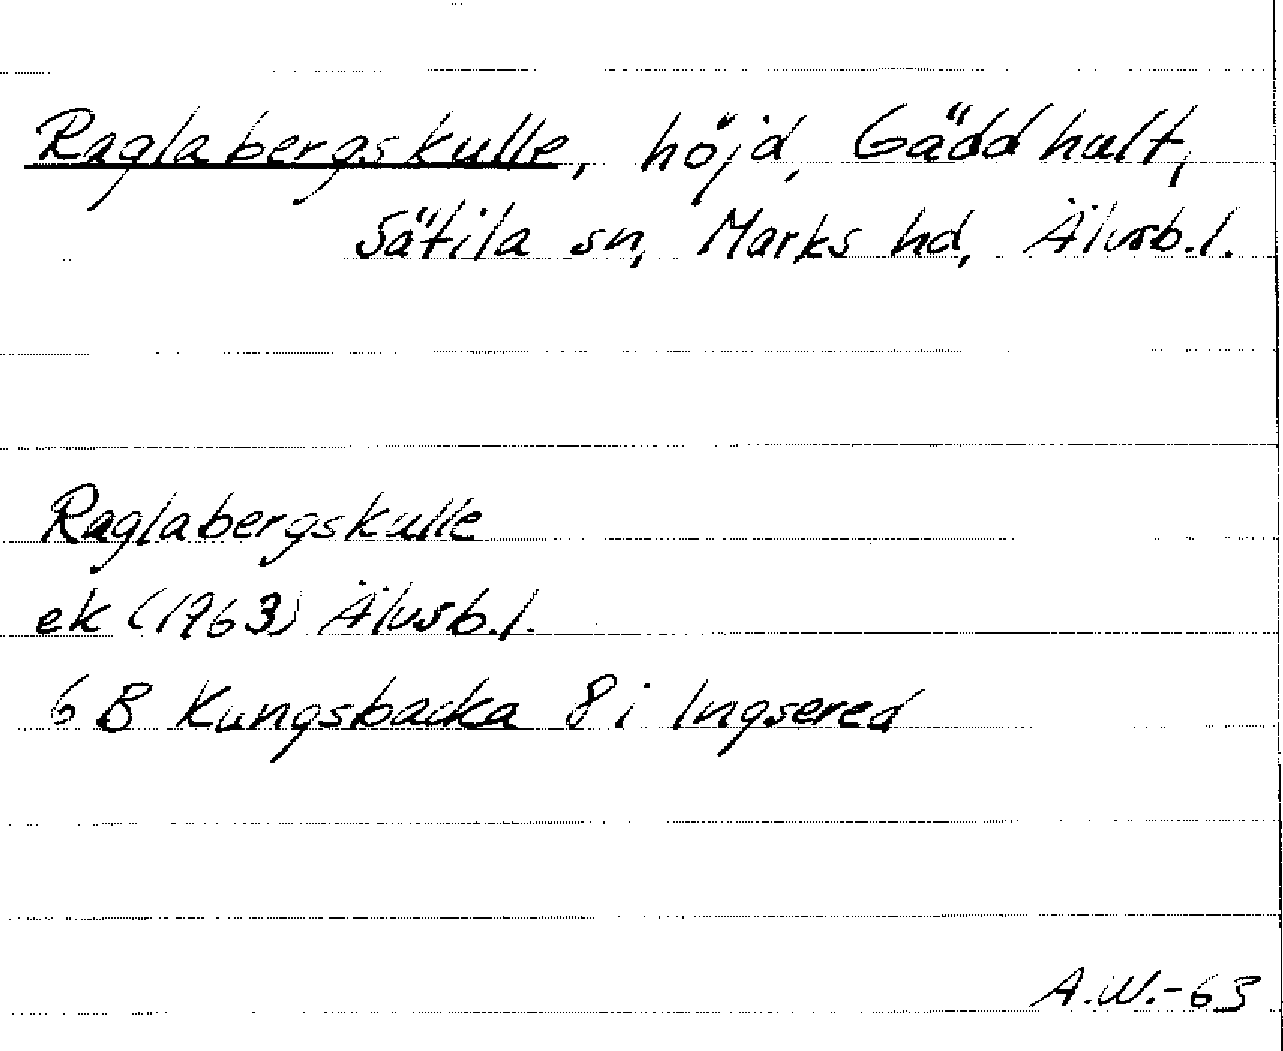 Raglabergskulle, höjd, Gäddhult,
Sätila sn, Marks hd, Älvsb.l.
Raglabergskulle
ek (1963) Älvsb.l.
6 B Kungsbacka 8 i Ingsered
A.W.-63